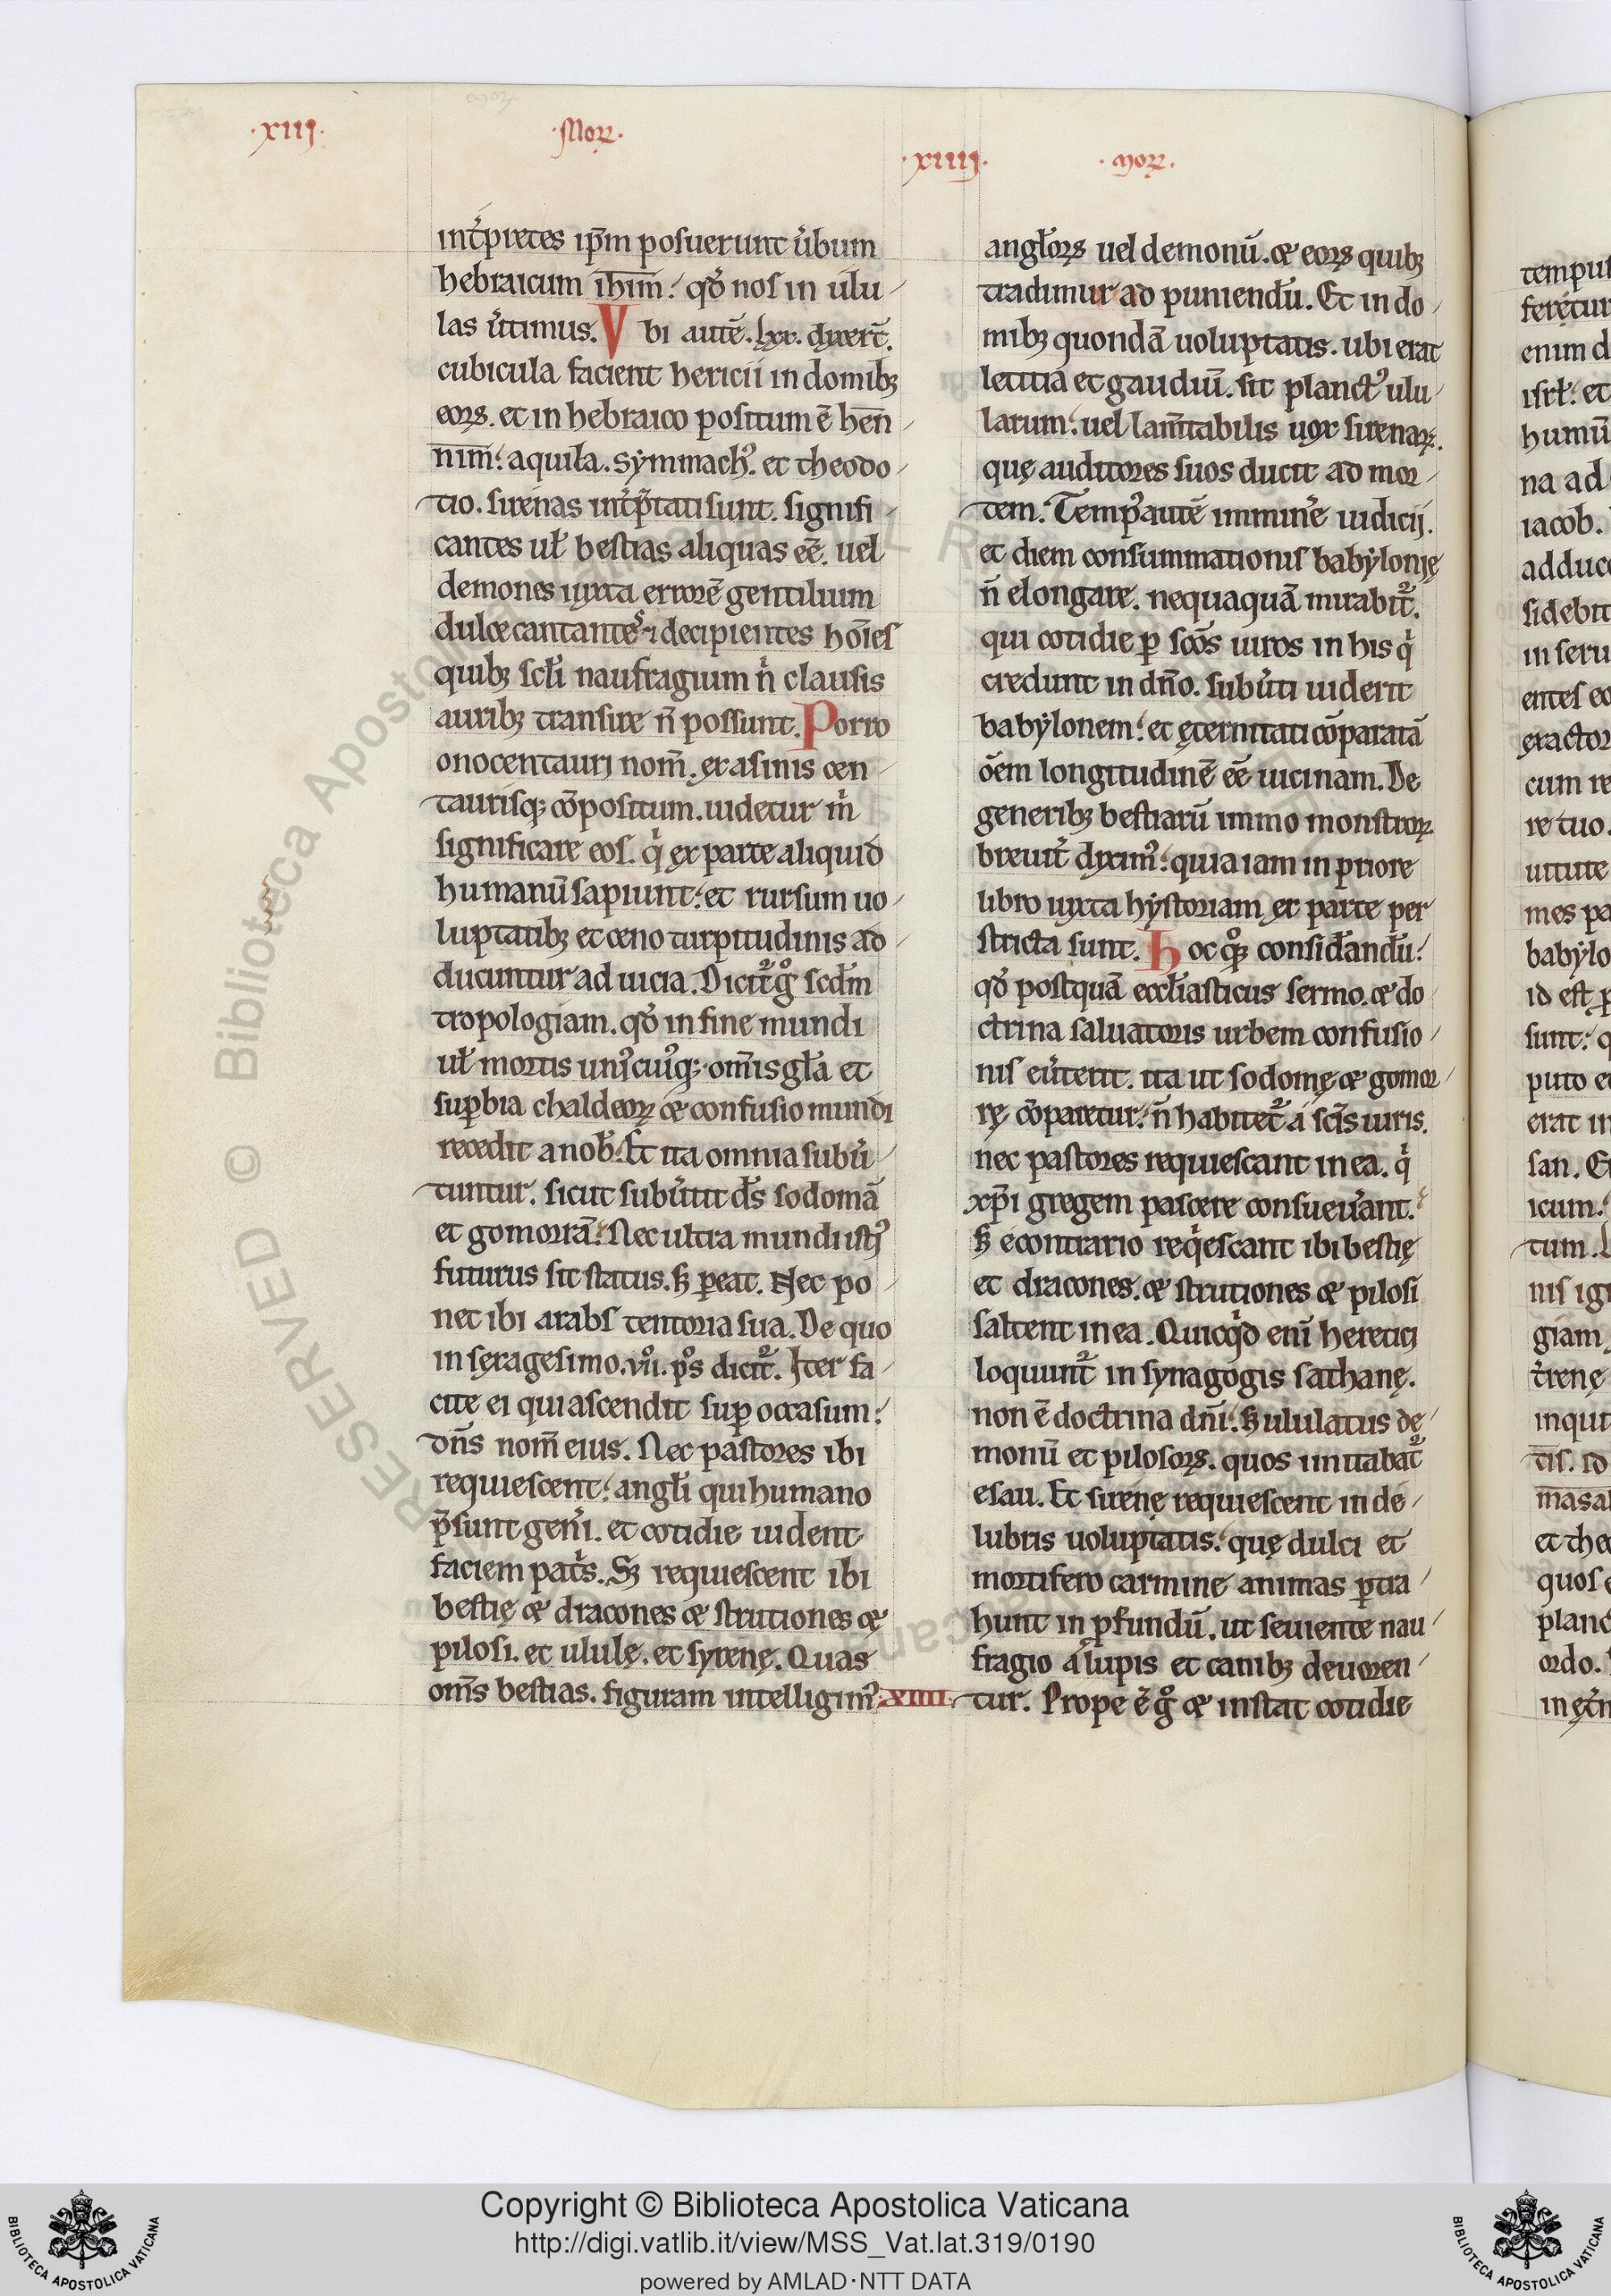 ·xiij· ·Morꝝ·
·xiiij· ·morꝝ·
int̾pretes ip̄m posuerunt u̾bum
hebraicum ihim̅: qd̾ nos in ulu
las u̾timus. Vbi autē .lxx. dixert̄.
cubicula facient hericii in domibꝫ
eoꝝ. et in hebraico positum ē hen
nim̅: aquila. symmachꝰ. et theodo
tio. sirenas int̾p̄tati sunt. signifi
cantes ul̾ bestias aliquas eē. uel
demones iuxta errorē gentilium
dulce cantantes ⁊ decipientes ho̅ıes
quibꝫ scl̾i naufragium nͥ clausis
auribꝫ transire n̄ possunt. Porro
onocentauri nom̄. ex asinis cen
taurisqꝫ cōpositum. uidetur mͥ
significare eos. qͥ ex parte aliquid
humanū sapiunt: et rursum uo
luptatibꝫ et ceno turpitudinis ad
ducuntur ad uicia. Dicit᷑ gͦ scd̄m
tropologiam. qd̾ in fine mundi
ul̾ mortis uniꝰcuiꝰqꝫ: om̄is gl̄a et
suꝑbia chaldeoꝝ & confusio mundi
recedit a nob̾. Et ita omnia subu̾
tuntur. sicut subu̾tit ds̄ sodomā
et gomorrā: Nec ultra mundi istiꝰ
futurus sit status. sꝫ ꝑeat. Nec po
net ibi arabs tentoria sua. De quo
in sexagesimo .vii̊. ps̊ dicit᷑. Iter fa
cite ei qui ascendit suꝑ occasum:
dn̄s nom̄ eius. Nec pastores ibi
requiescent: angl̾i qui humano
p̄sunt gen̾i. et cotidie uident
faciem pat̾s. Sꝫ requiescent ibi
bestię & dracones & strutiones &
pilosi. et ululę. et syrenę. Quas
om̄s bestias. figuram intelligimꝰ
angl̾oꝝ uel demonū. & eoꝝ quibꝫ
tradimur ad puniendū. Et in do
mibꝫ quondā uoluptatis. ubi erat
letitia et gaudiū. sit planctꝰ ulu
larum: uel lam̄tabilis uox sirenaꝝ.
quę auditores suos ducit ad mor
tem. Tempꝰ autē immin̾e iudicij.
et diem consummationis babylonię
n̄ elongare. nequaquā mirabit᷑.
qui cotidie ꝑ scōs uiros in his qͥ
credunt in dn̄o. subu̾ti uiderit
babylonem: et ęternitati cōparatā
ōem longitudinē eē uicinam. De
generibꝫ bestiarū immo monstroꝝ
breuit̾ diximꝰ: quia iam in priore
libro iuxta hystoriam ex parte per
stricta sunt. Hoc qͦꝫ consid̾andū:
qd̾ postquā eccl̾iasticus sermo. & do
ctrina saluatoris urbem confusio
nis eu̾terit. ita ut sodomę & gomor
rę cōparetur: n̄ habitet᷑ a scīs uiris.
nec pastores requiescant in ea. qͥ
xp̄i gregem pascere consueu̾ant.
sꝫ econtrario reqͥescant ibi bestię
et dracones. & strutiones & pilosi
saltent in ea. Quicqͥd enī heretici
loquunt᷑ in synagogis sathanę.
non ē doctrina dn̄i: sꝫ ululatus dę
monū et pilosoꝝ. quos imitabat᷑
esau. Et sirenę requiescent in de
lubris uoluptatis: quę dulci et
mortifero carmine animas ꝑtra
hunt in ꝓfundū. ut seuiente nau
fragio a lupis et canibꝫ deuoren
.XIIII. tur. Prope ē gͦ & instat cotidie
tempus
feretur
enim d
isrl̾: et
humū
na ad
iacob.
adduce
sidebit
in seru
entes eo
exactor
cum re
re tuo.
uttute
mes pa
babylo
id est p
sunt: q
puto e
erat in
san. E
icum:
tum.
nis ign
giam
t̾renę
inquit
tis. id
masa
et the
quos
planc
ordo.
in ęt̾n
Copyright © Biblioteca Apostolica Vaticana
http://digi.vatlib.it/view/MSS_Vat.lat.319/0190
powered by AMLAD·NTT DATA
BIBLIOTECA APOSTOLICA VATICANA
BIBLIOTECA APOSTOLICA VATICANA